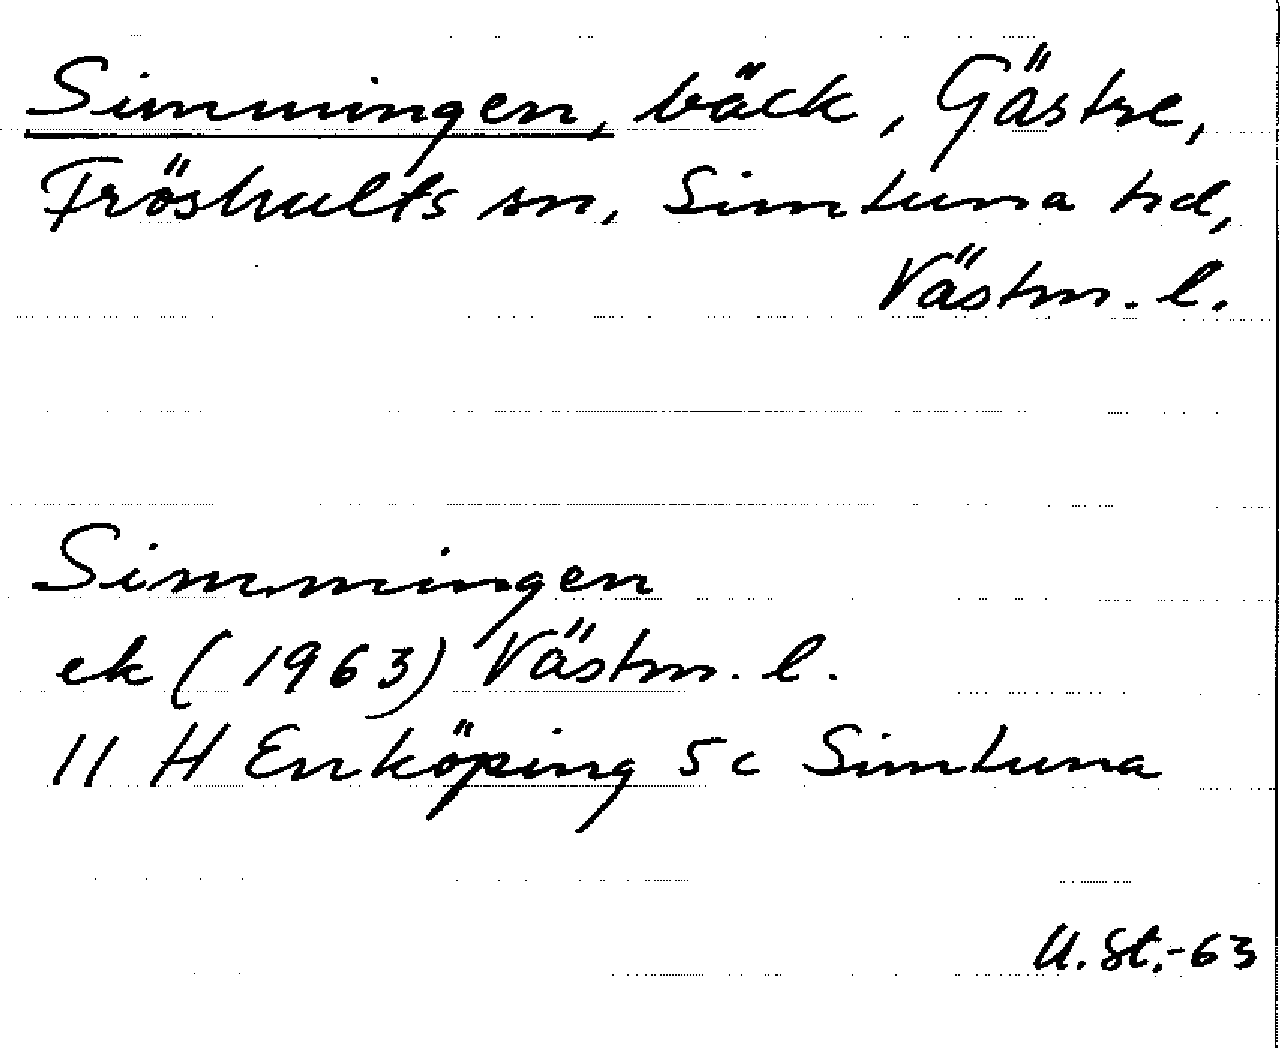 Simmingen, bäck, Gästre,
Fröshults sn, Simtuna hd,
Västm. l.
Simmingen
ek (1963) Västm. l.
11 H Enköping 5c Simtuna
U.St.-63